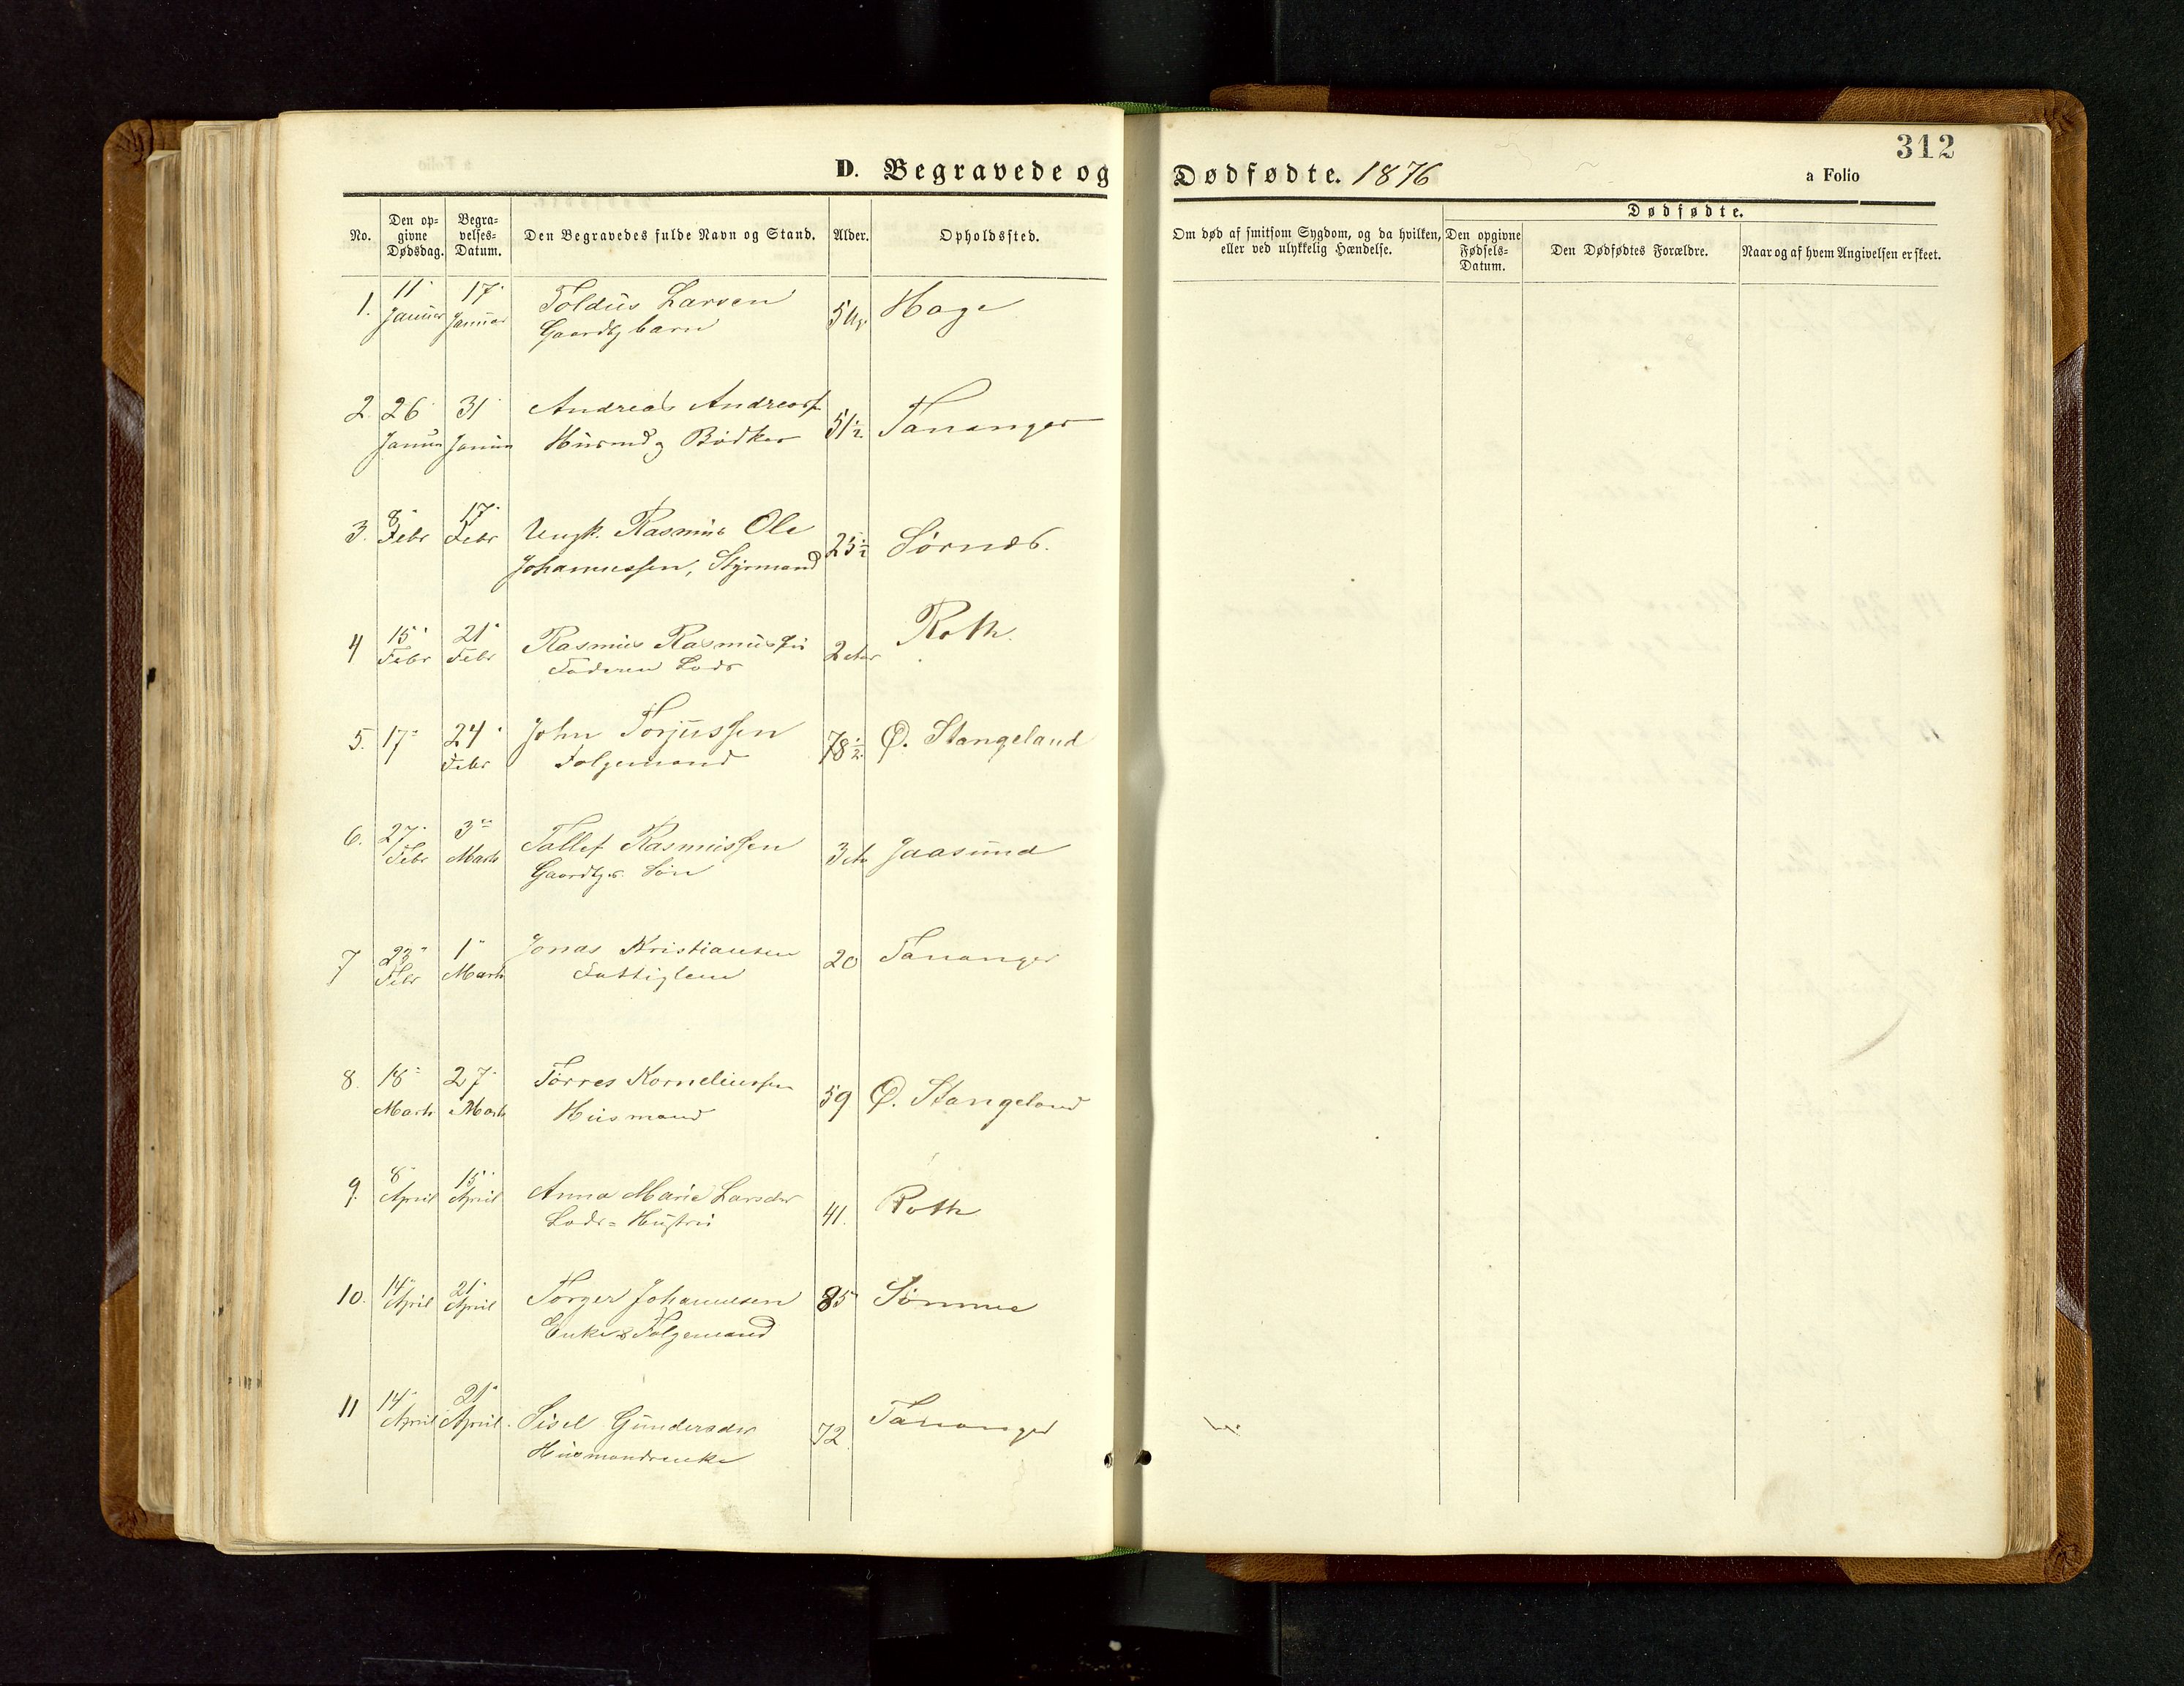 312
D. Begravede og Dødfødte. 1876
a Folio
No.
Den op=
givne
Dødsdag.
Begra=
velses=
Datum.
Den Begravedes fulde Navn og Stand.
Alder.
Opholdssted.
Om død af smitsom Sygdom, og da hvilken,
eller ved ulykkelig Hændelse.
Dødfødte.
Den opgivne
Fødsels=
Datum.
Den Dødfødtes Forældre.
Naar og af hvem Angivelsen er skeet.
1. 11 Januar 17 Januar Toldus Larsen 5 Ug. Hage
Gaardbg barn
2. 26 Januar 31 Januar Andreas Andreass. 51½ Tananger
Husmd og Bødker
3. 8 Febr 17 Febr Ungk. Rasmus Ole 25½ Sørnes.
Johannessen, Styrmand
4 15 Febr 21 Febr Rasmus Rasmussen 2 Roth.
Faderen Lods
5. 17 24 Febr John Torjussen 78½ Ø. Stangeland
Folgemand
6. 27 Febr 3 Marts Tollef Rasmussen 3 Jaasund
Gaardbgs. Søn
7 23 Febr 1 Marts Jonas Kristiansen 20 Tananger
Fattiglem
8. 18 Marts 27 Marts Torres Korneliussen 59 Ø. Stangeland
Husmand
9. 8 April 15 April Anna Marie Larsdtr 41. Roth
Lods=Hustru
10. 14 April 21 April Torger Johannesen 85 Sømme
Enke & Folgemand
11 14 April 21 April Sisel Gundersdtr 72 Tananger
Husmandsenke